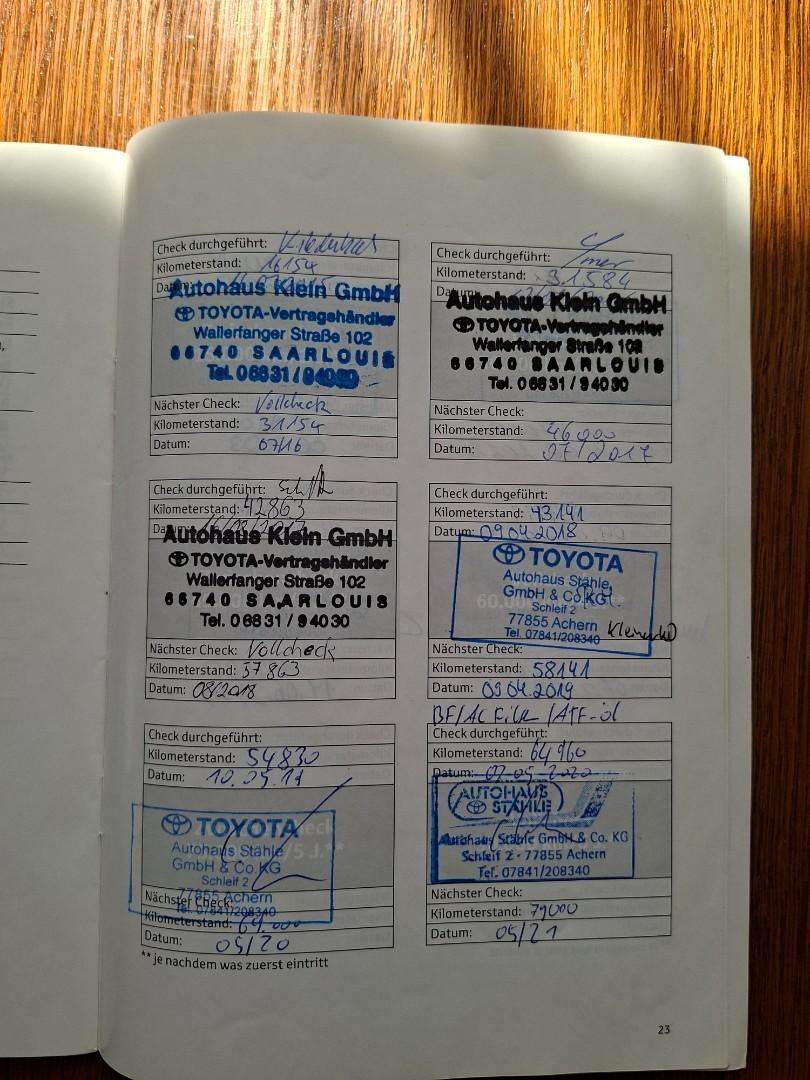 Check durchgeführt:
Kilometerstand: 16154
Datum:
Autohaus Klein GmbH
TOYOTA-Vertragshändler
Wallerfanger Straße 102
66740 SAARLOUIS
Tel. 06831/94030
Nächster Check: Vollcheck
Kilometerstand: 31154
Datum: 07/16
Check durchgeführt:
Kilometerstand: 31584
Datum:
Autohaus Klein GmbH
TOYOTA-Vertragshändler
Wallerfanger Straße 102
66740 SAARLOUIS
Tel. 06831/94030
Nächster Check:
Kilometerstand: 46000
Datum: 07/2017
Check durchgeführt:
Kilometerstand: 42863
Datum:
Autohaus Klein GmbH
TOYOTA-Vertragshändler
Wallerfanger Straße 102
66740 SAARLOUIS
Tel. 06831/94030
Nächster Check: Vollcheck
Kilometerstand: 57863
Datum: 08/2018
Check durchgeführt:
Kilometerstand: 43141
Datum: 09.04.2018
TOYOTA
Autohaus Stähle
GmbH & Co.KG
Schleif 2
77855 Achern
Tel. 07841/208340
Nächster Check:
Kilometerstand: 58141
Datum: 09.04.2019
Check durchgeführt:
Kilometerstand: 54830
Datum: 10.05.19
TOYOTA
Autohaus Stähle
GmbH & Co.KG
Schleif 2
77855 Achern
Tel. 07841/208340
Nächster Check:
Kilometerstand: 69.000
Datum: 05/20
BF/AC Filt /ATF-öl
Check durchgeführt:
Kilometerstand: 64960
Datum: 07-05-2020
AUTOHAUS
STÄHLE
Autohaus Stähle GmbH & Co. KG
Schleif 2 - 77855 Achern
Tel. 07841/208340
Nächster Check:
Kilometerstand: 79000
Datum: 05/21
** je nachdem was zuerst eintritt
23